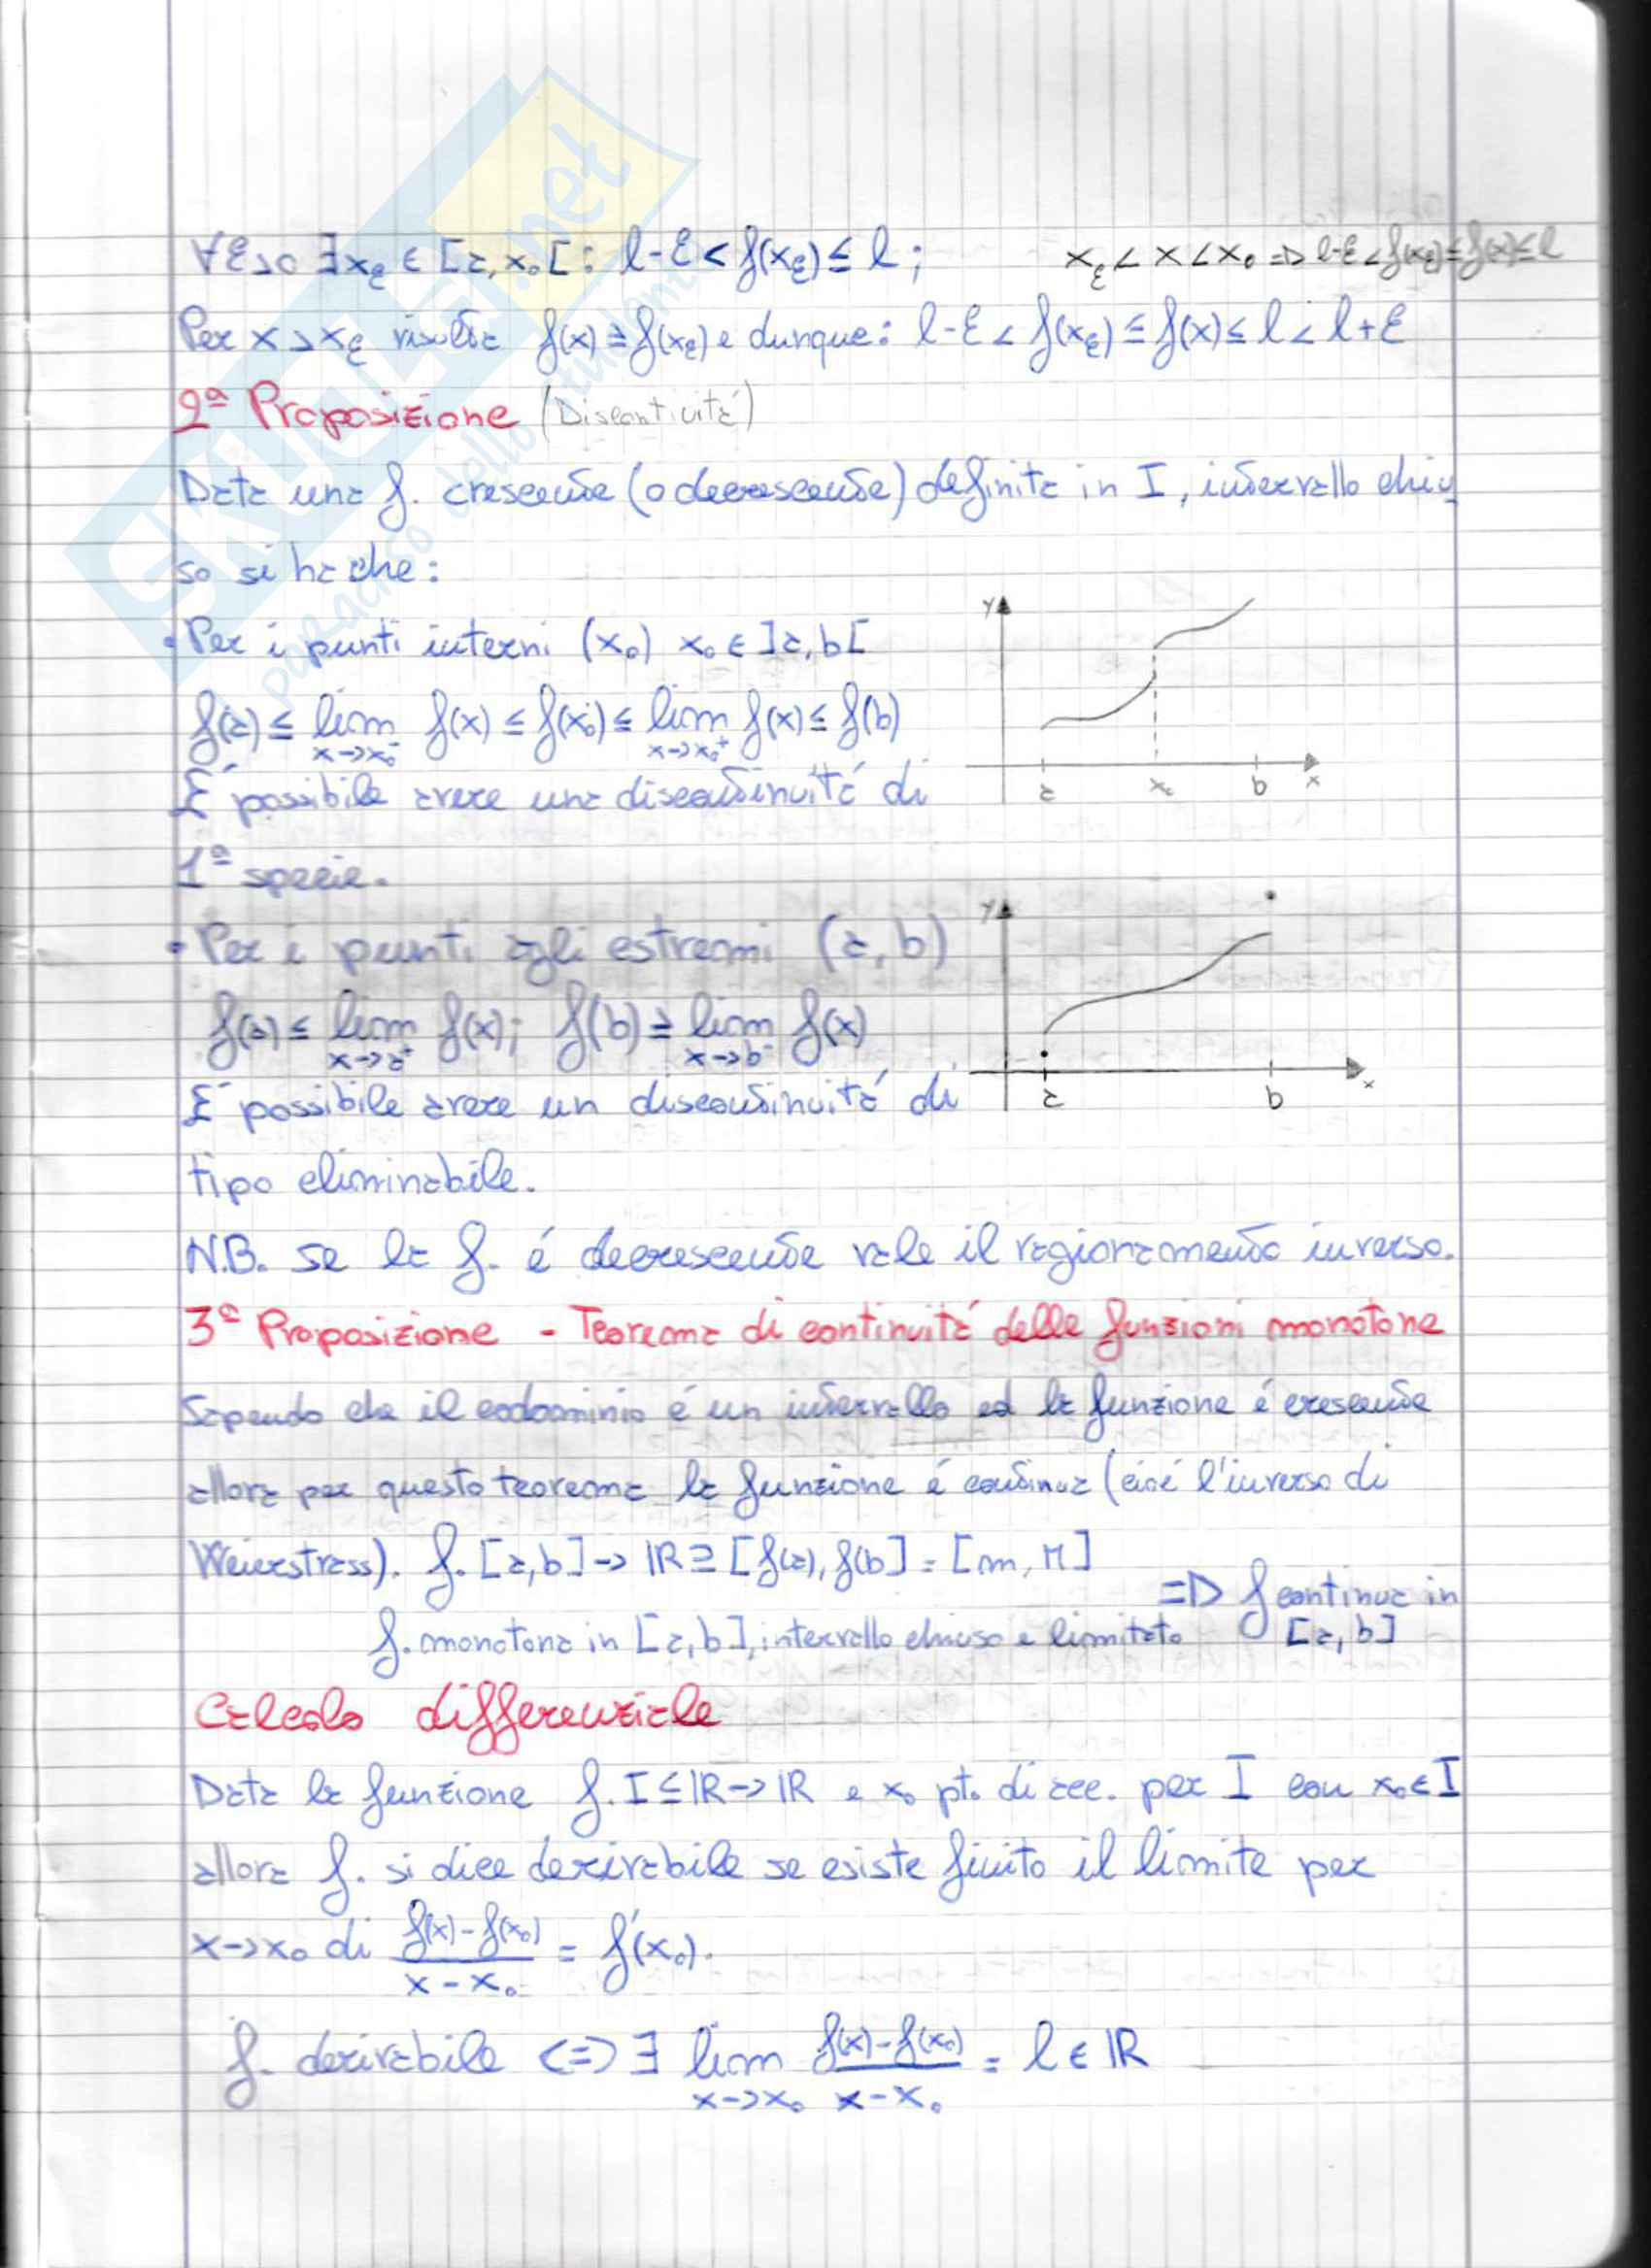 ∀ε>0 ∃xε ∈ [a, x₀[ : l-ε < f(xε) ≤ l ; xε < x < x₀ => l-ε < f(xε) ≤ f(x) ≤ l
Per x > xε risulta f(x) ≥ f(xε) e dunque: l-ε < f(xε) ≤ f(x) ≤ l < l+ε
2ª Proposizione (Discontività)
Data una f. crescente (o decrescente) definita in I, intervallo chiu
so si ha che:
• Per i punti interni (x₀) x₀ ∈ ]a, b[
f(a) ≤ lim x→x₀⁻ f(x) ≤ f(x₀) ≤ lim x→x₀⁺ f(x) ≤ f(b)
y
a x₀ b x
É possibile avere una discontinuitá di
1ª specie.
• Per i punti agli estremi (a, b)
f(a) ≤ lim x→a⁺ f(x); f(b) ≥ lim x→b⁻ f(x)
y
a b x
É possibile avere un discontinuitá di
tipo eliminabile.
N.B. se la f. é decrescente vale il ragionamento inverso.
3ª Proposizione - Teorema di continuitá delle funzioni monotone
Sapendo che il codominio é un intervallo ed la funzione é crescente
allora per questo teorema la funzione é continua (cioé l'inverso di
Weierstrass). f. [a, b] → ℝ ⊇ [f(a), f(b] = [m, M]
f. monotona in [a, b], intervallo chiuso e limitato => f continua in [a, b]
Calcolo differenziale
Data la funzione f. I ⊆ ℝ → ℝ e x₀ pt. di acc. per I con x₀ ∈ I
allora f. si dice derivabile se esiste finito il limite per
x→x₀ di (f(x) - f(x₀))/(x - x₀) = f'(x₀).
f. derivabile <=> ∃ lim x→x₀ (f(x) - f(x₀))/(x - x₀) = l ∈ ℝ
SKUOLA.net
paradiso dello studente